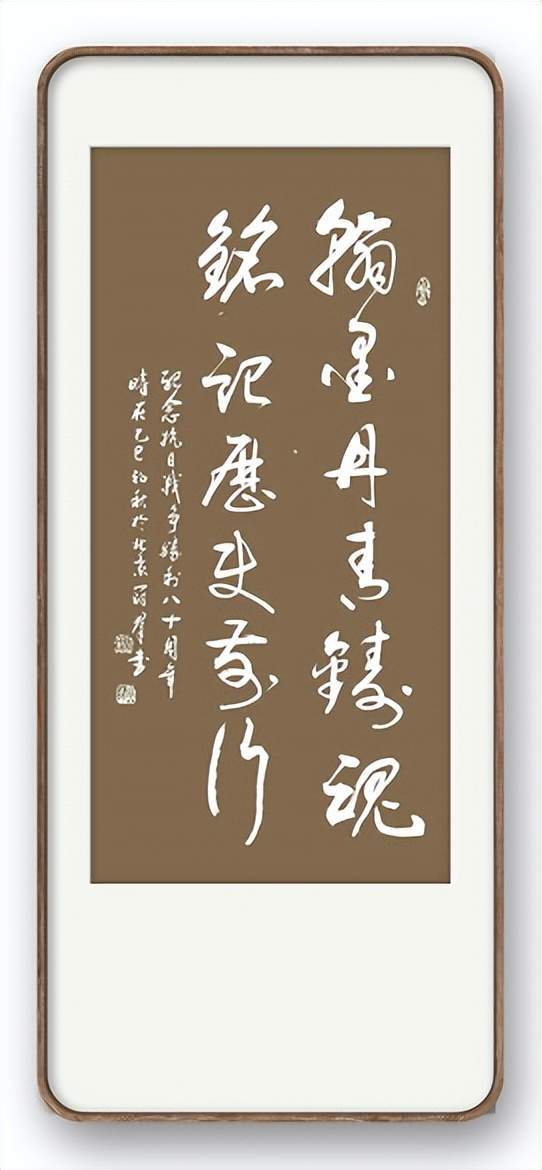 翰墨丹青鑄魂
銘記歷史前行
紀念抗日戰爭勝利八十周年
時在乙巳初秋於北京 群书